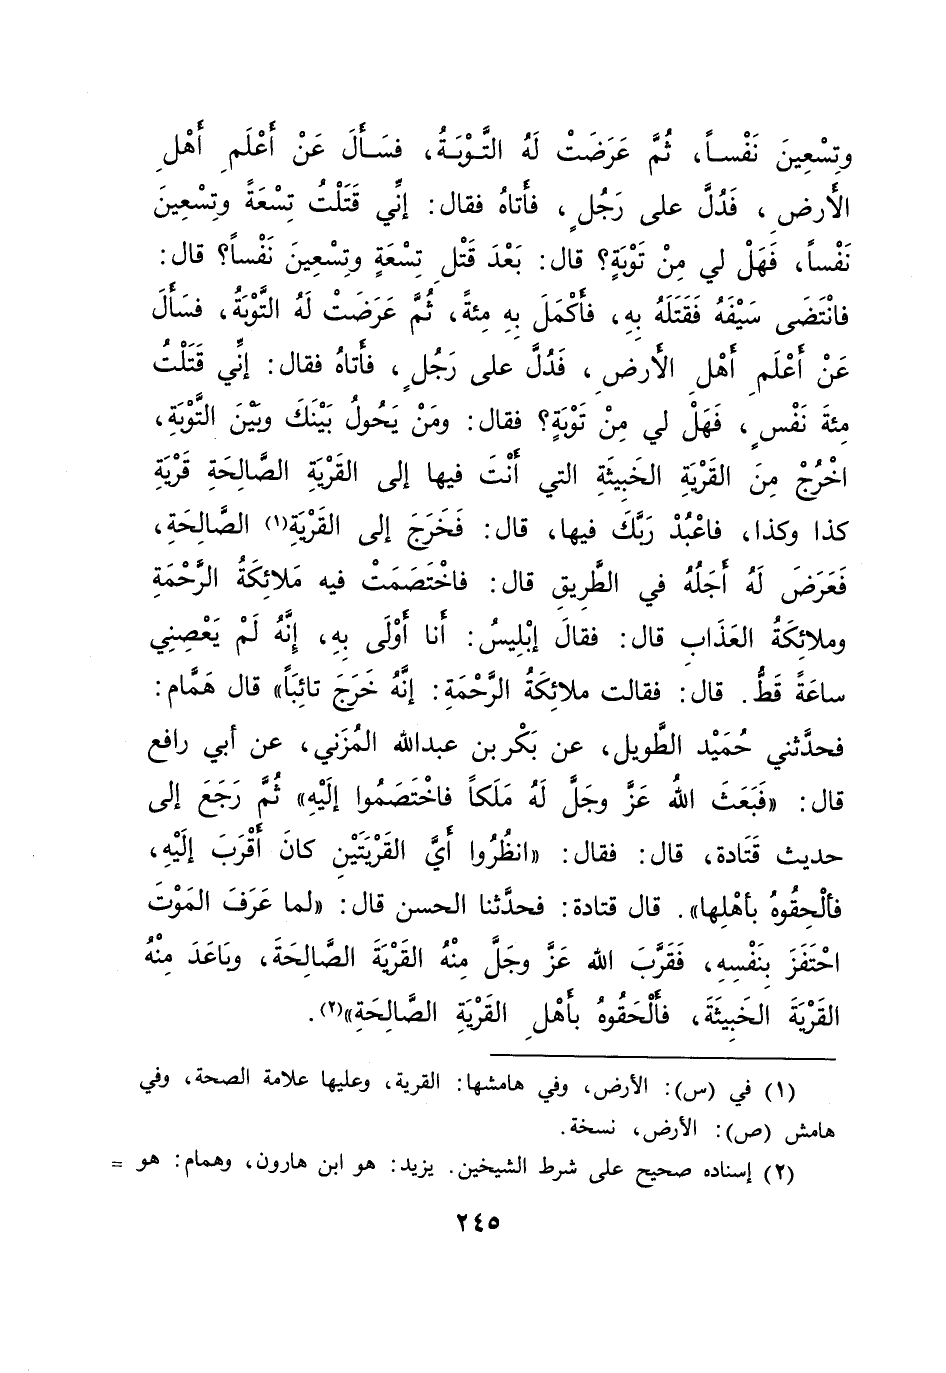 وتِسْعِينَ نَفْساً، ثُمَّ عَرَضَتْ لَهُ التَّوْبَةُ، فسَأَلَ عَنْ أَعْلَمِ أَهْلِ
الأَرضِ، فَدُلَّ على رَجُلٍ، فأَتاهُ فقال: إنِّي قَتَلْتُ تِسْعَةً وتِسْعِينَ
نَفْساً، فَهَلْ لي مِنْ تَوْبَةٍ؟ قال: بَعْدَ قَتْلِ تِسْعَةٍ وتِسْعِينَ نَفْساً؟ قال:
فانْتَضَى سَيْفَهُ فَقَتَلَهُ بِهِ، فأَكْمَلَ بِهِ مِئةً، ثُمَّ عَرَضَتْ لَهُ التَّوْبَةُ، فسَأَلَ
عَنْ أَعْلَمِ أَهْلِ الأَرضِ، فَدُلَّ على رَجُلٍ، فأَتاهُ فقال: إنِّي قَتَلْتُ
مِئةَ نَفْسٍ، فَهَلْ لي مِنْ تَوْبَةٍ؟ فقال: ومَنْ يَحُولُ بَيْنَكَ وبَيْنَ التَّوْبَةِ،
اخْرُجْ مِنَ القَرْيَةِ الخَبِيثَةِ التي أَنْتَ فيها إلى القَرْيَةِ الصَّالِحَةِ قَرْيَةِ
كذا وكذا، فاعْبُدْ رَبَّكَ فيها، قال: فَخَرَجَ إلى القَرْيَةِ(١) الصَّالِحَةِ،
فَعَرَضَ لَهُ أَجَلُهُ في الطَّرِيقِ قال: فاخْتَصَمَتْ فيه مَلائِكَةُ الرَّحْمَةِ
وملائِكَةُ العَذَابِ قال: فقالَ إبْلِيسُ: أَنا أَوْلَى بِهِ، إنَّهُ لَمْ يَعْصِنِي
ساعَةً قَطُّ. قال: فقالت ملائِكَةُ الرَّحْمَةِ: إنَّهُ خَرَجَ تائِبَاً» قال هَمَّام:
فحدَّثني حُمَيْد الطَّويل، عن بَكْر بن عبدالله المُزَني، عن أبي رافع
قال: «فَبَعَثَ اللهُ عَزَّ وجَلَّ لَهُ مَلَكاً فاخْتَصَمُوا إلَيْهِ» ثُمَّ رَجَعَ إلى
حديث قَتَادة، قال: فقال: «انظُرُوا أَيَّ القَرْيَتَيْنِ كانَ أَقْرَبَ إلَيْهِ،
فأَلْحِقُوهُ بأَهْلِها». قال قتادة: فحدَّثنا الحسن قال: «لما عَرَفَ المَوْتَ
احْتَفَزَ بِنَفْسِهِ، فَقَرَّبَ الله عَزَّ وجَلَّ مِنْهُ القَرْيَةَ الصَّالِحَةَ، وبَاعَدَ مِنْهُ
القَرْيَةَ الخَبِيثَةَ، فأَلْحَقُوهُ بأَهْلِ القَرْيَةِ الصَّالِحَةِ»(٢).
(١) في (س): الأرض، وفي هامشها: القرية، وعليها علامة الصحة، وفي
هامش (ص): الأرض، نسخة.
(٢) إسناده صحيح على شرط الشيخين. يزيد: هو ابن هارون، وهمام: هو =
٢٤٥